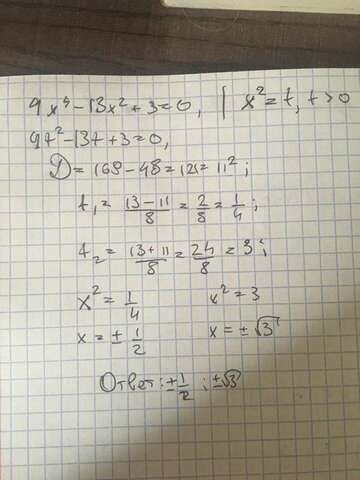 4x⁴-13x²+3=0, | x²=t, t>0
4t²-13t+3=0,
D=169-48=121=11²;
t₁=(13-11)/8=2/8=1/4;
t₂=(13+11)/8=24/8=3;
x²=1/4 x²=3
x=±1/2 x=±√3
Ответ: ±1/2; ±√3